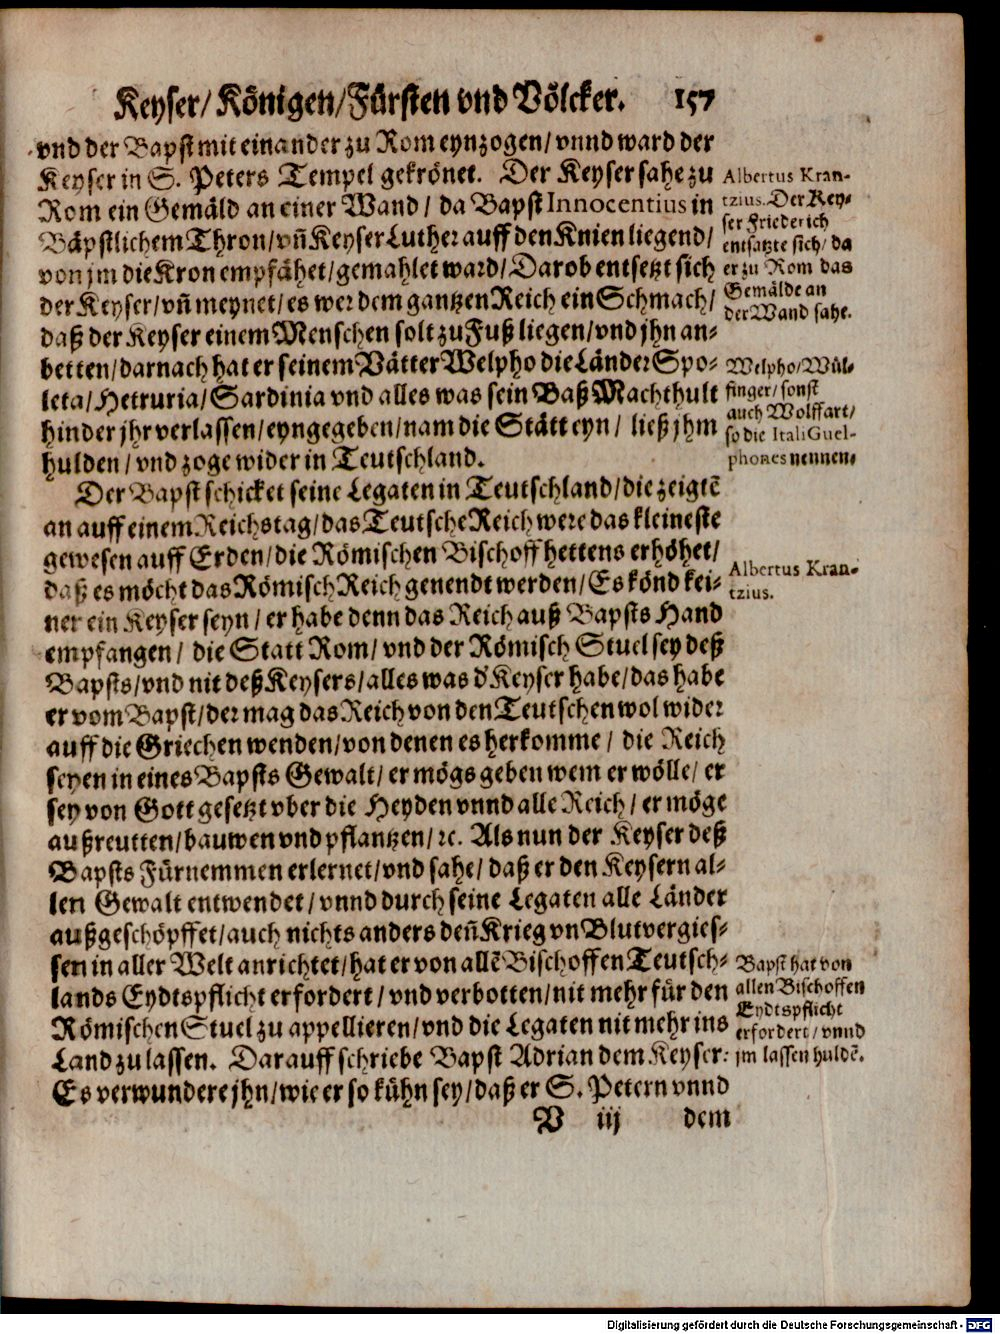 Keyser/ Königen/ Fürsten vnd Völcker. 157
vnd der Bapst mit einander zu Rom eynzogen/ vnnd ward der
Keyser in S. Peters Tempel gekrönet. Der Keyser sahe zu
Rom ein Gemäld an einer Wand/ da Bapst Innocentius in
Bäpstlichem Thron/ vñ Keyser Luther auff den Knien liegend/
von jm die Kron empfähet/ gemahlet ward/ Darob entsetzt sich
der Keyser/ vñ meynet/ es wer dem gantzen Reich ein Schmach/
daß der Keyser einem Menschen solt zu Fuß liegen/ vnd jhn an-
betten/ darnach hat er seinem Vätter Welpho die Länder Spo-
leta/ Hetruria/ Sardinia vnd alles was sein Baß Machthult
hinder jhr verlassen/ eyngegeben/ nam die Stätt eyn/ ließ jhm
hulden/ vnd zoge wider in Teutschland.
Der Bapst schicket seine Legaten in Teutschland/ die zeigtē
an auff einem Reichstag/ das Teutsche Reich were das kleineste
gewesen auff Erden/ die Römischen Bischoff hettens erhöhet/
daß es möcht das Römisch Reich genendt werden/ Es könd kei-
ner ein Keyser seyn/ er habe denn das Reich auß Bapsts Hand
empfangen/ die Statt Rom/ vnd der Römisch Stuel sey deß
Bapsts/ vnd nit deß Keysers/ alles was d' Keyser habe/ das habe
er vom Bapst/ der mag das Reich von den Teutschen wol wider
auff die Griechen wenden/ von denen es herkomme/ die Reich
seyen in eines Bapsts Gewalt/ er mögs geben wem er wölle/ er
sey von Gott gesetzt vber die Heyden vnnd alle Reich/ er möge
außreutten/ bauwen vnd pflantzen/ ꝛc. Als nun der Keyser deß
Bapsts Fürnemmen erlernet/ vnd sahe/ daß er den Keysern al-
len Gewalt entwendet/ vnnd durch seine Legaten alle Länder
außgeschöpffet/ auch nichts anders deñ Krieg vn Blutvergies-
sen in aller Welt anrichtet/ hat er von allē Bischoffen Teutsch-
lands Eydtspflicht erfordert/ vnd verbotten/ nit mehr für den
Römischen Stuel zu appellieren/ vnd die Legaten nit mehr ins
Land zu lassen. Darauff schriebe Bapst Adrian dem Keyser:
Es verwundere jhn/ wie er so kühn sey/ daß er S. Petern vnnd
V iij dem
Albertus Kran-
tzius. Der Key-
ser Friederich
entsatzte sich/ da
er zu Rom das
Gemälde an
der Wand sahe.
Welpho/ Wül-
finger/ sonst
auch Wolffart/
so die Itali Guel-
phones nennen.
Albertus Kran-
tzius.
Bapst hat von
allen Bischoffen
Eydtspflicht
erfordert/ vnnd
jm lassen huldē.
Digitalisierung gefördert durch die Deutsche Forschungsgemeinschaft - DFG